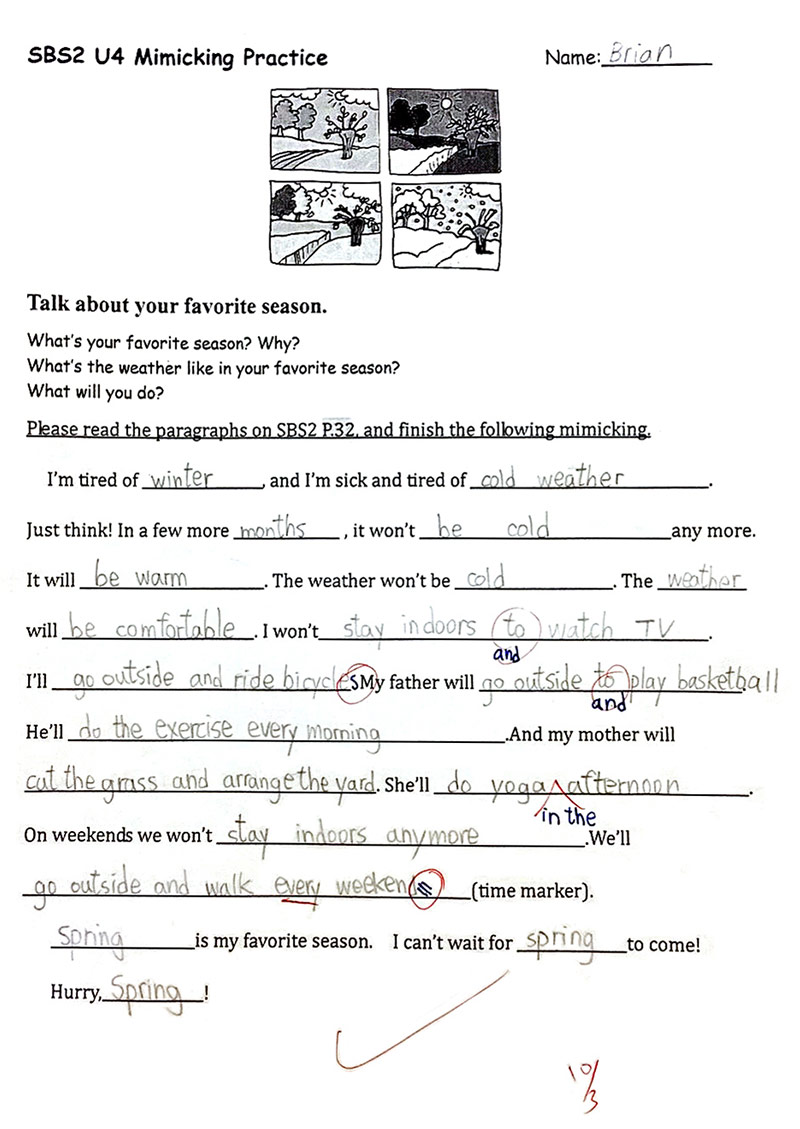 SBS2 U4 Mimicking Practice Name: Brian
Talk about your favorite season.
What's your favorite season? Why?
What's the weather like in your favorite season?
What will you do?
Please read the paragraphs on SBS2 P.32, and finish the following mimicking.
I'm tired of winter, and I'm sick and tired of cold weather.
Just think! In a few more months, it won't be cold any more.
It will be warm. The weather won't be cold. The weather
will be comfortable. I won't stay indoors to watch TV.
and
I'll go outside and ride bicycles My father will go outside to play basketball
and
He'll do the exercise every morning.And my mother will
cut the grass and arrange the yard. She'll do yoga afternoon.
in the
On weekends we won't stay indoors anymore.We'll
go outside and walk every weekend (time marker).
Spring is my favorite season. I can't wait for spring to come!
Hurry, Spring!
10/3